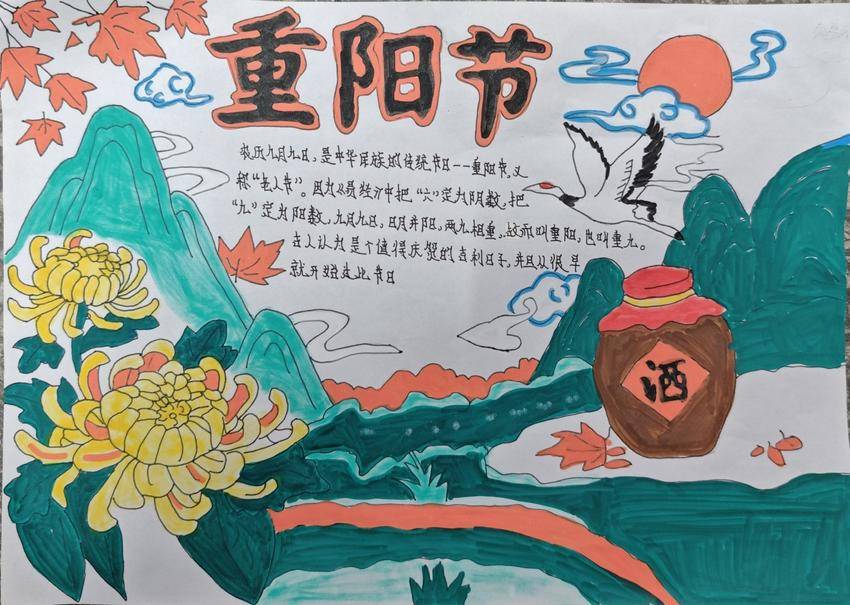 重阳节
农历九月九日，是中华民族的传统节日--重阳节，又
称“老人节”。因为《易经》中把“六”定为阴数，把
“九”定为阳数，九月九日，日月并阳，两九相重，故而叫重阳，也叫重九。
古人认为是个值得庆贺的吉利日子，并且从很早
就开始过此节日
酒